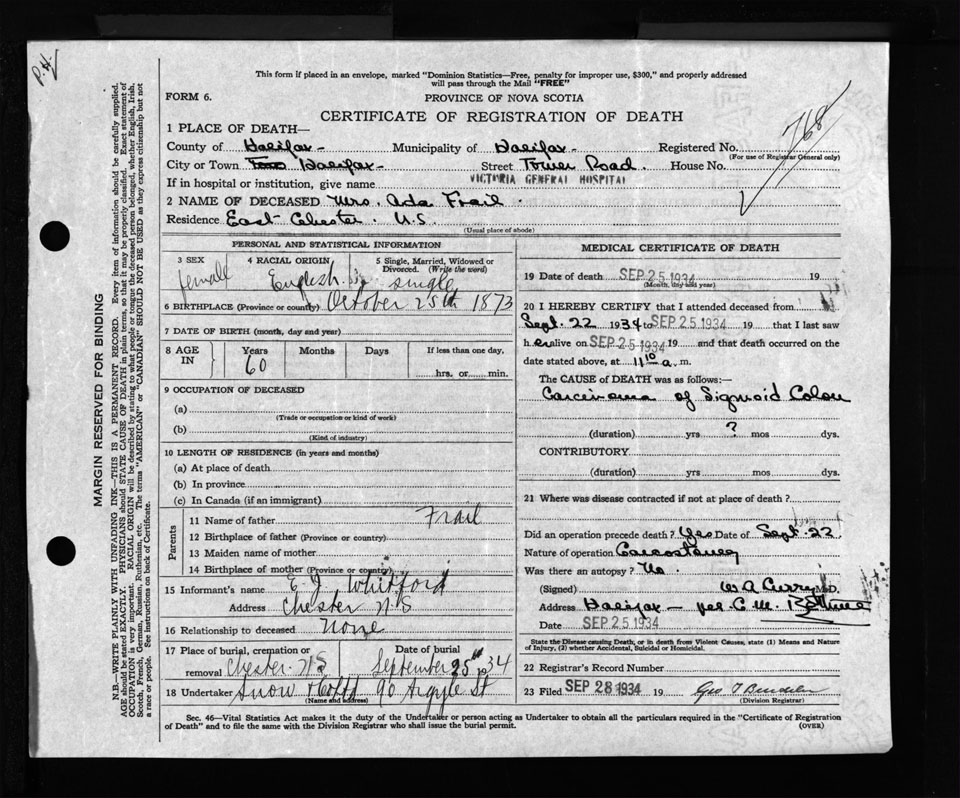 P.H.
This form if placed in an envelope, marked "Dominion Statistics—Free, penalty for improper use, $300," and properly addressed
will pass through the Mail "FREE"
FORM 6.
PROVINCE OF NOVA SCOTIA
CERTIFICATE OF REGISTRATION OF DEATH
768
1 PLACE OF DEATH—
County of Halifax - Municipality of Halifax - Registered No.
(For use of Registrar General only)
City or Town Halifax - Street Tower Road. House No.
If in hospital or institution, give name VICTORIA GENERAL HOSPITAL
2 NAME OF DECEASED Mrs. Ada Frail.
Residence East Chester. N.S.
(Usual place of abode)
PERSONAL AND STATISTICAL INFORMATION
3 SEX 4 RACIAL ORIGIN 5 Single, Married, Widowed or Divorced. (Write the word)
female English single
6 BIRTHPLACE (Province or country) October 25th 1873
7 DATE OF BIRTH (month, day and year)
8 AGE IN Years Months Days If less than one day,
60 hrs. or min.
9 OCCUPATION OF DECEASED
(a)
(Trade or occupation or kind of work)
(b)
(Kind of industry)
10 LENGTH OF RESIDENCE (in years and months)
(a) At place of death
(b) In province
(c) In Canada (if an immigrant)
Parents
11 Name of father Frail
12 Birthplace of father (Province or country)
13 Maiden name of mother
14 Birthplace of mother (Province or country)
15 Informant's name E.J. Whitford
Address Chester N S
16 Relationship to deceased None
17 Place of burial, cremation or removal Date of burial
Chester. N S September 25th 1934
18 Undertaker Snow & Co Ltd 90 Argyle St
(Name and address)
MEDICAL CERTIFICATE OF DEATH
19 Date of death SEP 25 1934 19
(Month, day and year)
20 I HEREBY CERTIFY that I attended deceased from
Sept. 22 1934 to SEP 25 1934 19 that I last saw
her alive on SEP 25 1934 19 and that death occurred on the
date stated above, at 11 10 a. m.
The CAUSE OF DEATH was as follows:—
Carcinoma of Sigmoid Colon
(duration) yrs ? mos dys.
CONTRIBUTORY
(duration) yrs mos dys.
21 Where was disease contracted if not at place of death?
Did an operation precede death? Yes Date of Sept. 22
Nature of operation
Was there an autopsy? No.
(Signed) W A Curry M.D.
Address Halifax — per C. M. Bethune
Date SEP 25 1934
State the Disease causing Death, or in death from Violent Causes, state (1) Means and Nature
of Injury, (2) whether Accidental, Suicidal or Homicidal.
22 Registrar's Record Number
23 Filed SEP 28 1934 19
(Division Registrar)
Sec. 46—Vital Statistics Act makes it the duty of the Undertaker or person acting as Undertaker to obtain all the particulars required in the "Certificate of Registration
of Death" and to file the same with the Division Registrar who shall issue the burial permit. (OVER)
MARGIN RESERVED FOR BINDING
N.B.—WRITE PLAINLY WITH UNFADING INK—THIS IS A PERMANENT RECORD. Every item of information should be carefully supplied.
AGE should be stated EXACTLY. PHYSICIANS should STATE CAUSE OF DEATH in plain terms, so that it may be properly classified. Exact statement of
OCCUPATION is very important. RACIAL ORIGIN will be described by stating to what people or tongue the deceased person belonged, whether English, Irish,
Scotch, French, German, Russian, Ruthenian, etc. The terms "AMERICAN" or "CANADIAN" SHOULD NOT BE USED as they express citizenship but not
a race or people. See instructions on back of Certificate.